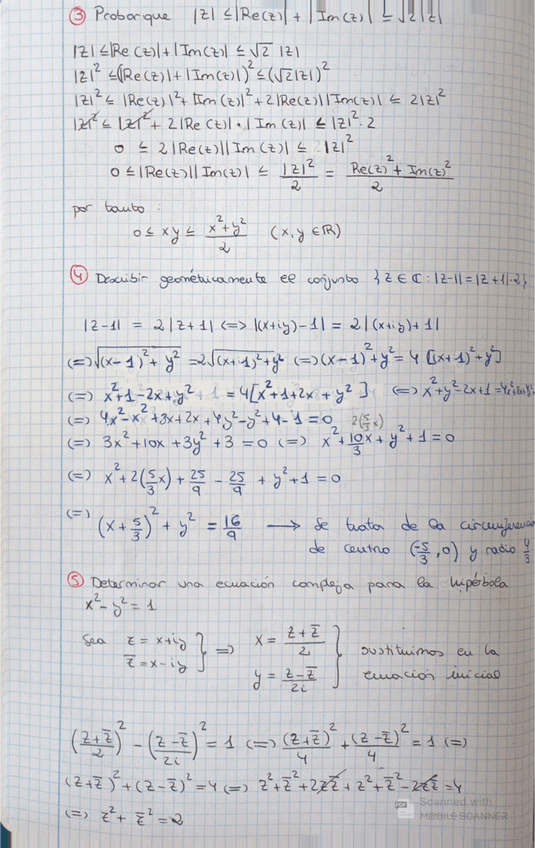 ③ Probar que |z| ≤ |Re(z)| + |Im(z)| ≤ √2 |z|
|z| ≤ |Re(z)| + |Im(z)| ≤ √2 |z|
|z|² ≤ (|Re(z)| + |Im(z)|)² ≤ (√2|z|)²
|z|² ≤ |Re(z)|² + |Im(z)|² + 2|Re(z)||Im(z)| ≤ 2|z|²
|z|² ≤ |z|² + 2|Re(z)|·|Im(z)| ≤ |z|²·2
0 ≤ 2|Re(z)||Im(z)| ≤ |z|²
0 ≤ |Re(z)||Im(z)| ≤ |z|²/2 = (Re(z)² + Im(z)²)/2
por tanto:
0 ≤ xy ≤ (x²+y²)/2 (x,y ∈ ℝ)
④ Describir geométricamente el conjunto {z ∈ ℂ : |z-1| = |z+1|·2}
|z-1| = 2|z+1| <=> |(x+iy)-1| = 2|(x+iy)+1|
<=> √((x-1)²+y²) = 2√((x+1)²+y²) <=> (x-1)²+y² = 4[(x+1)²+y²]
<=> x²+1-2x+y² = 4[x²+1+2x+y²] <=> x²+y²-2x+1 =
<=> 4x²-x²+8x+2x+4y²-y²+4-1=0 2(5/3 x)
<=> 3x²+10x+3y²+3=0 <=> x²+10/3 x+y²+1=0
<=> x²+2(5/3 x)+25/9 - 25/9 + y²+1=0
<=> (x+5/3)² + y² = 16/9 → Se trata de la circunferencia
de centro (-5/3, 0) y radio 4/3
⑤ Determinar una ecuación compleja para la hipérbola
x²-y²=1
Sea z = x+iy } => x = (z+z̄)/2 } sustituimos en la
z̄ = x-iy y = (z-z̄)/2i ecuación inicial
((z+z̄)/2)² - ((z-z̄)/2i)² = 1 <=> (z+z̄)²/4 + (z-z̄)²/4 = 1 <=>
(z+z̄)²+(z-z̄)²=4 <=> z²+z̄²+2zz̄+z²+z̄²-2zz̄=4
<=> z²+z̄²=2
Scanned with
MOBILE SCANNER